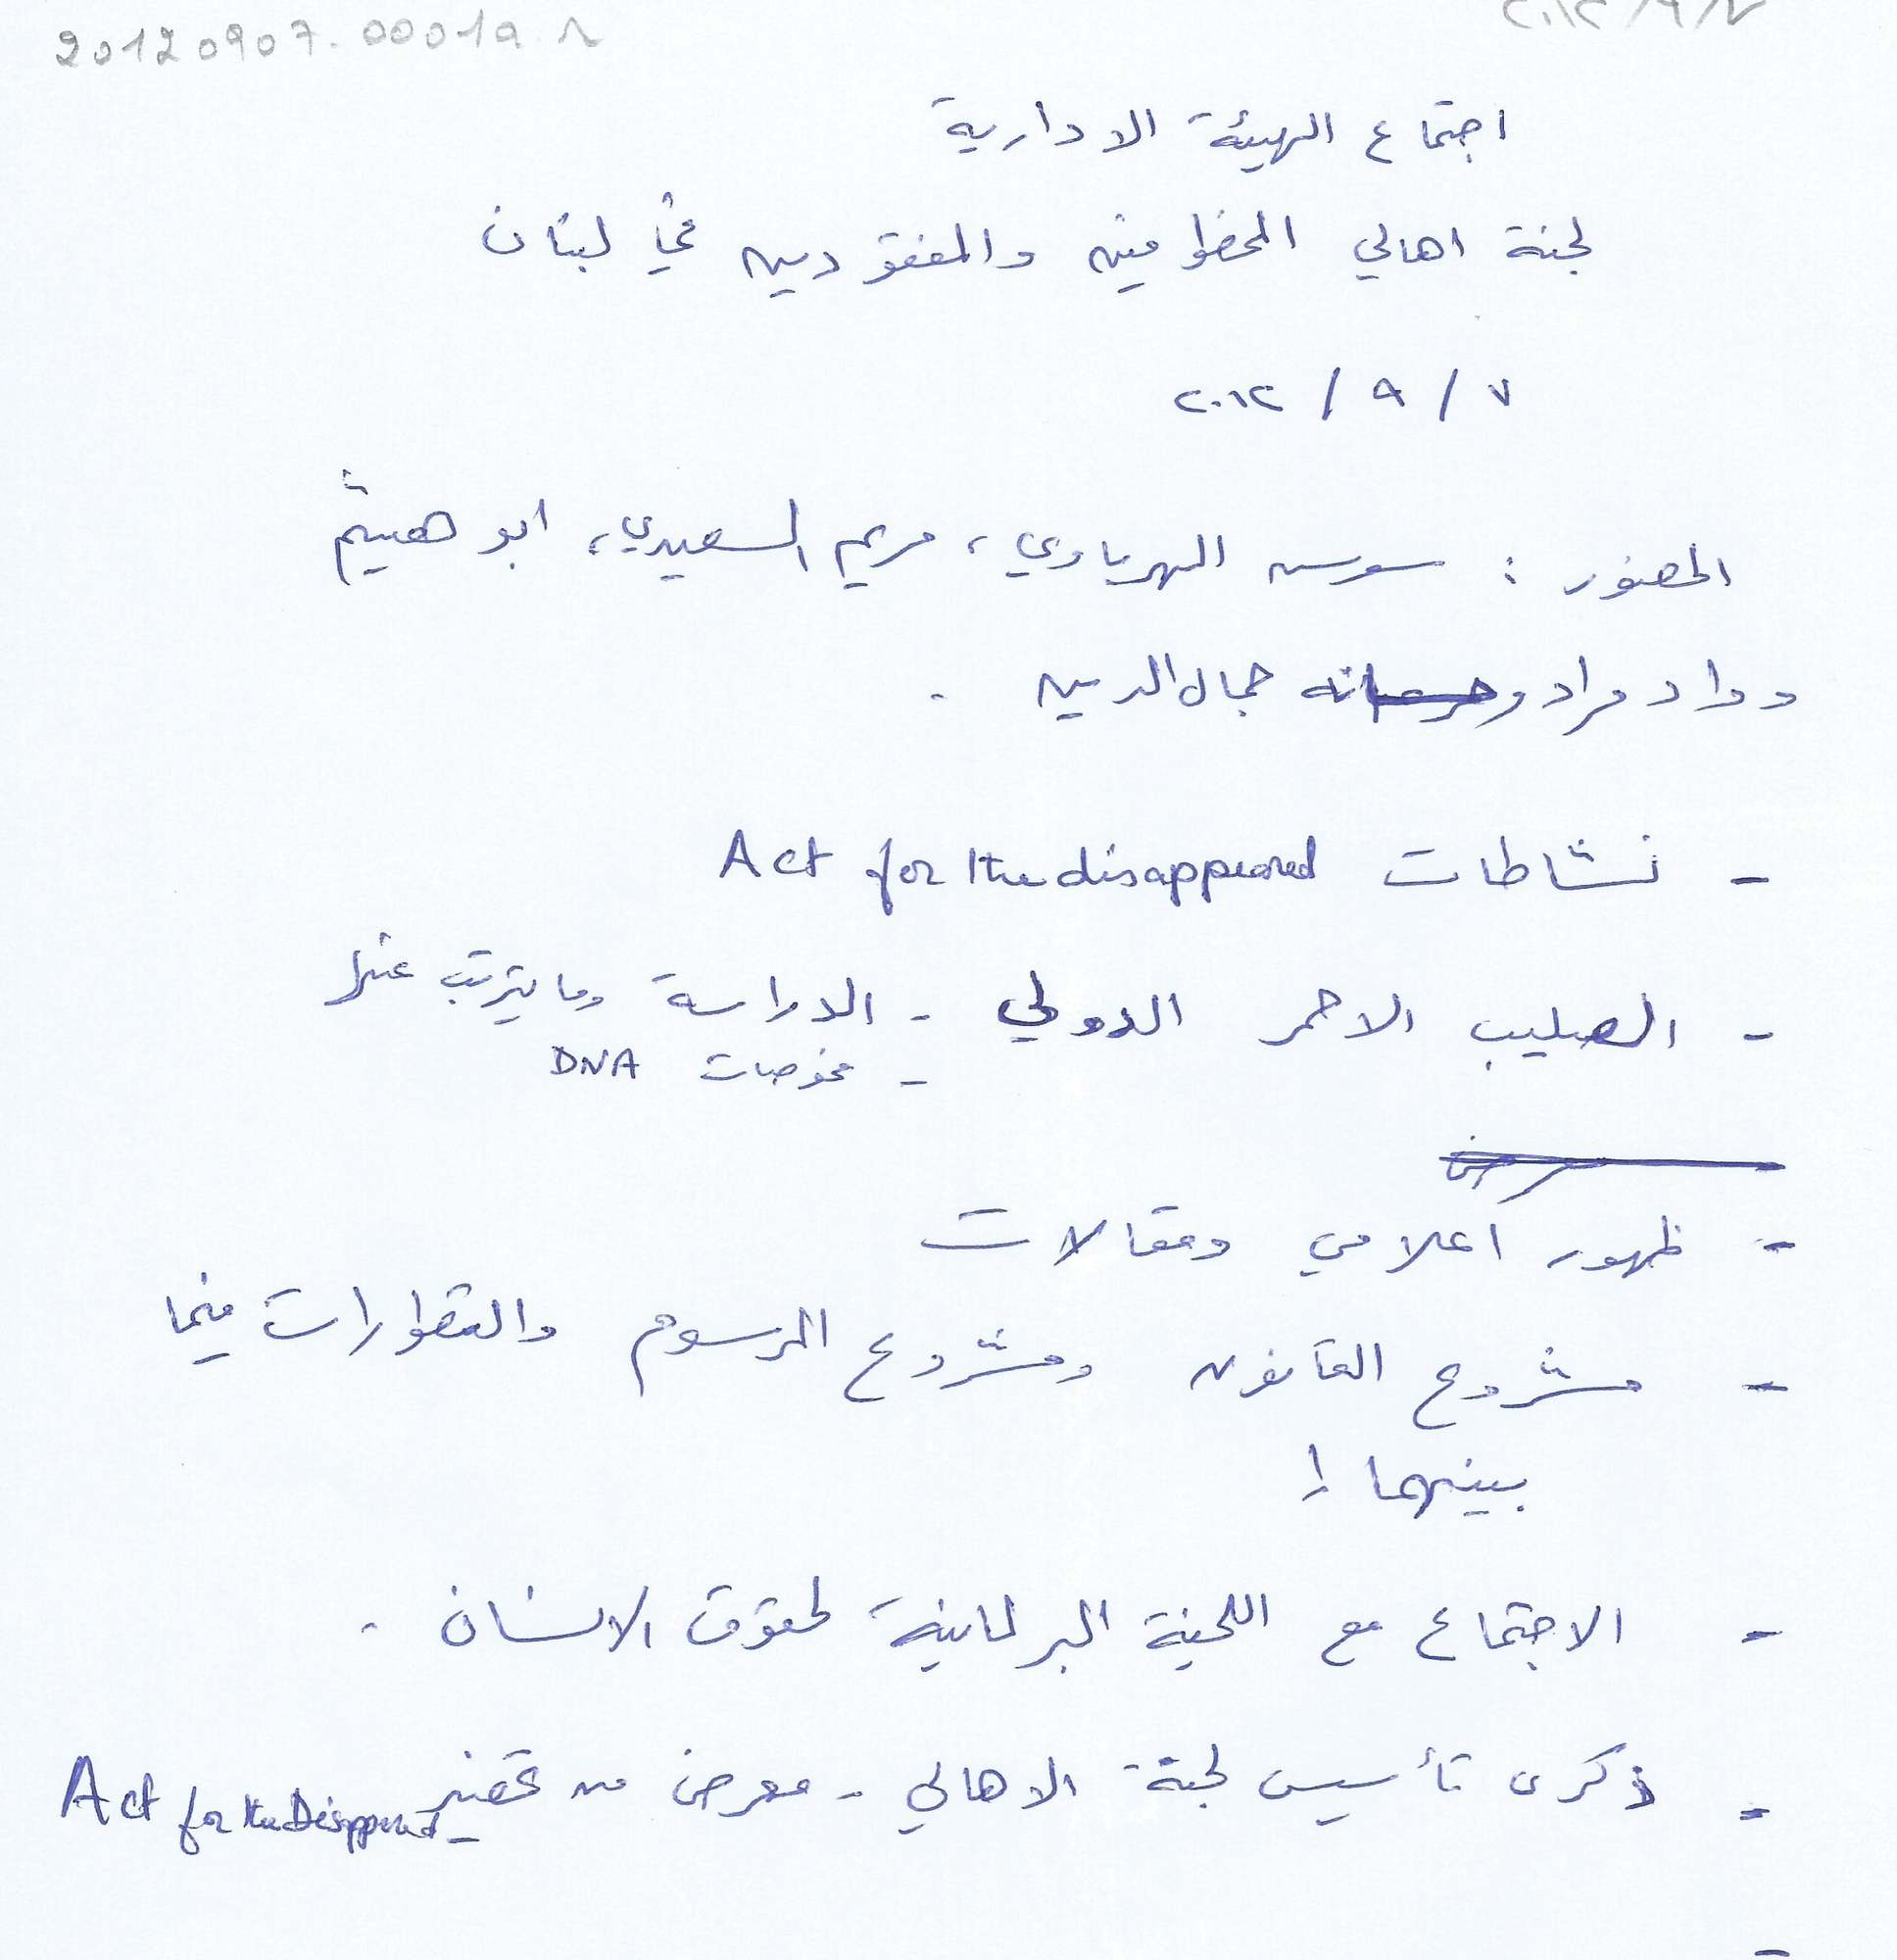 20120907.00019.
٢٠١٢/٩/٧
اجتماع الهيئة الادارية
لجنة اهالي المخطوفين والمفقودين في لبنان
٧ / ٩ / ٢٠١٢
الحضور : سوسن الهرباوي، مريم السعيدي، ابو هيثم
وداد مراد و جمال الدين .
- نشاطات Act for the disappeared
- الصليب الاحمر الدولي - الدراسة وما يترتب عنها
- فحوصات DNA
- ظهور اعلامي ومقالات
- مشروع القانون ومشروع المرسوم والتطوارات فيما
بينهما
- الاجتماع مع اللجنة البرلمانية لحقوق الانسان .
- ذكرى تأسيس لجنة الاهالي - معرض من تحضير Act for the Disappeared
-